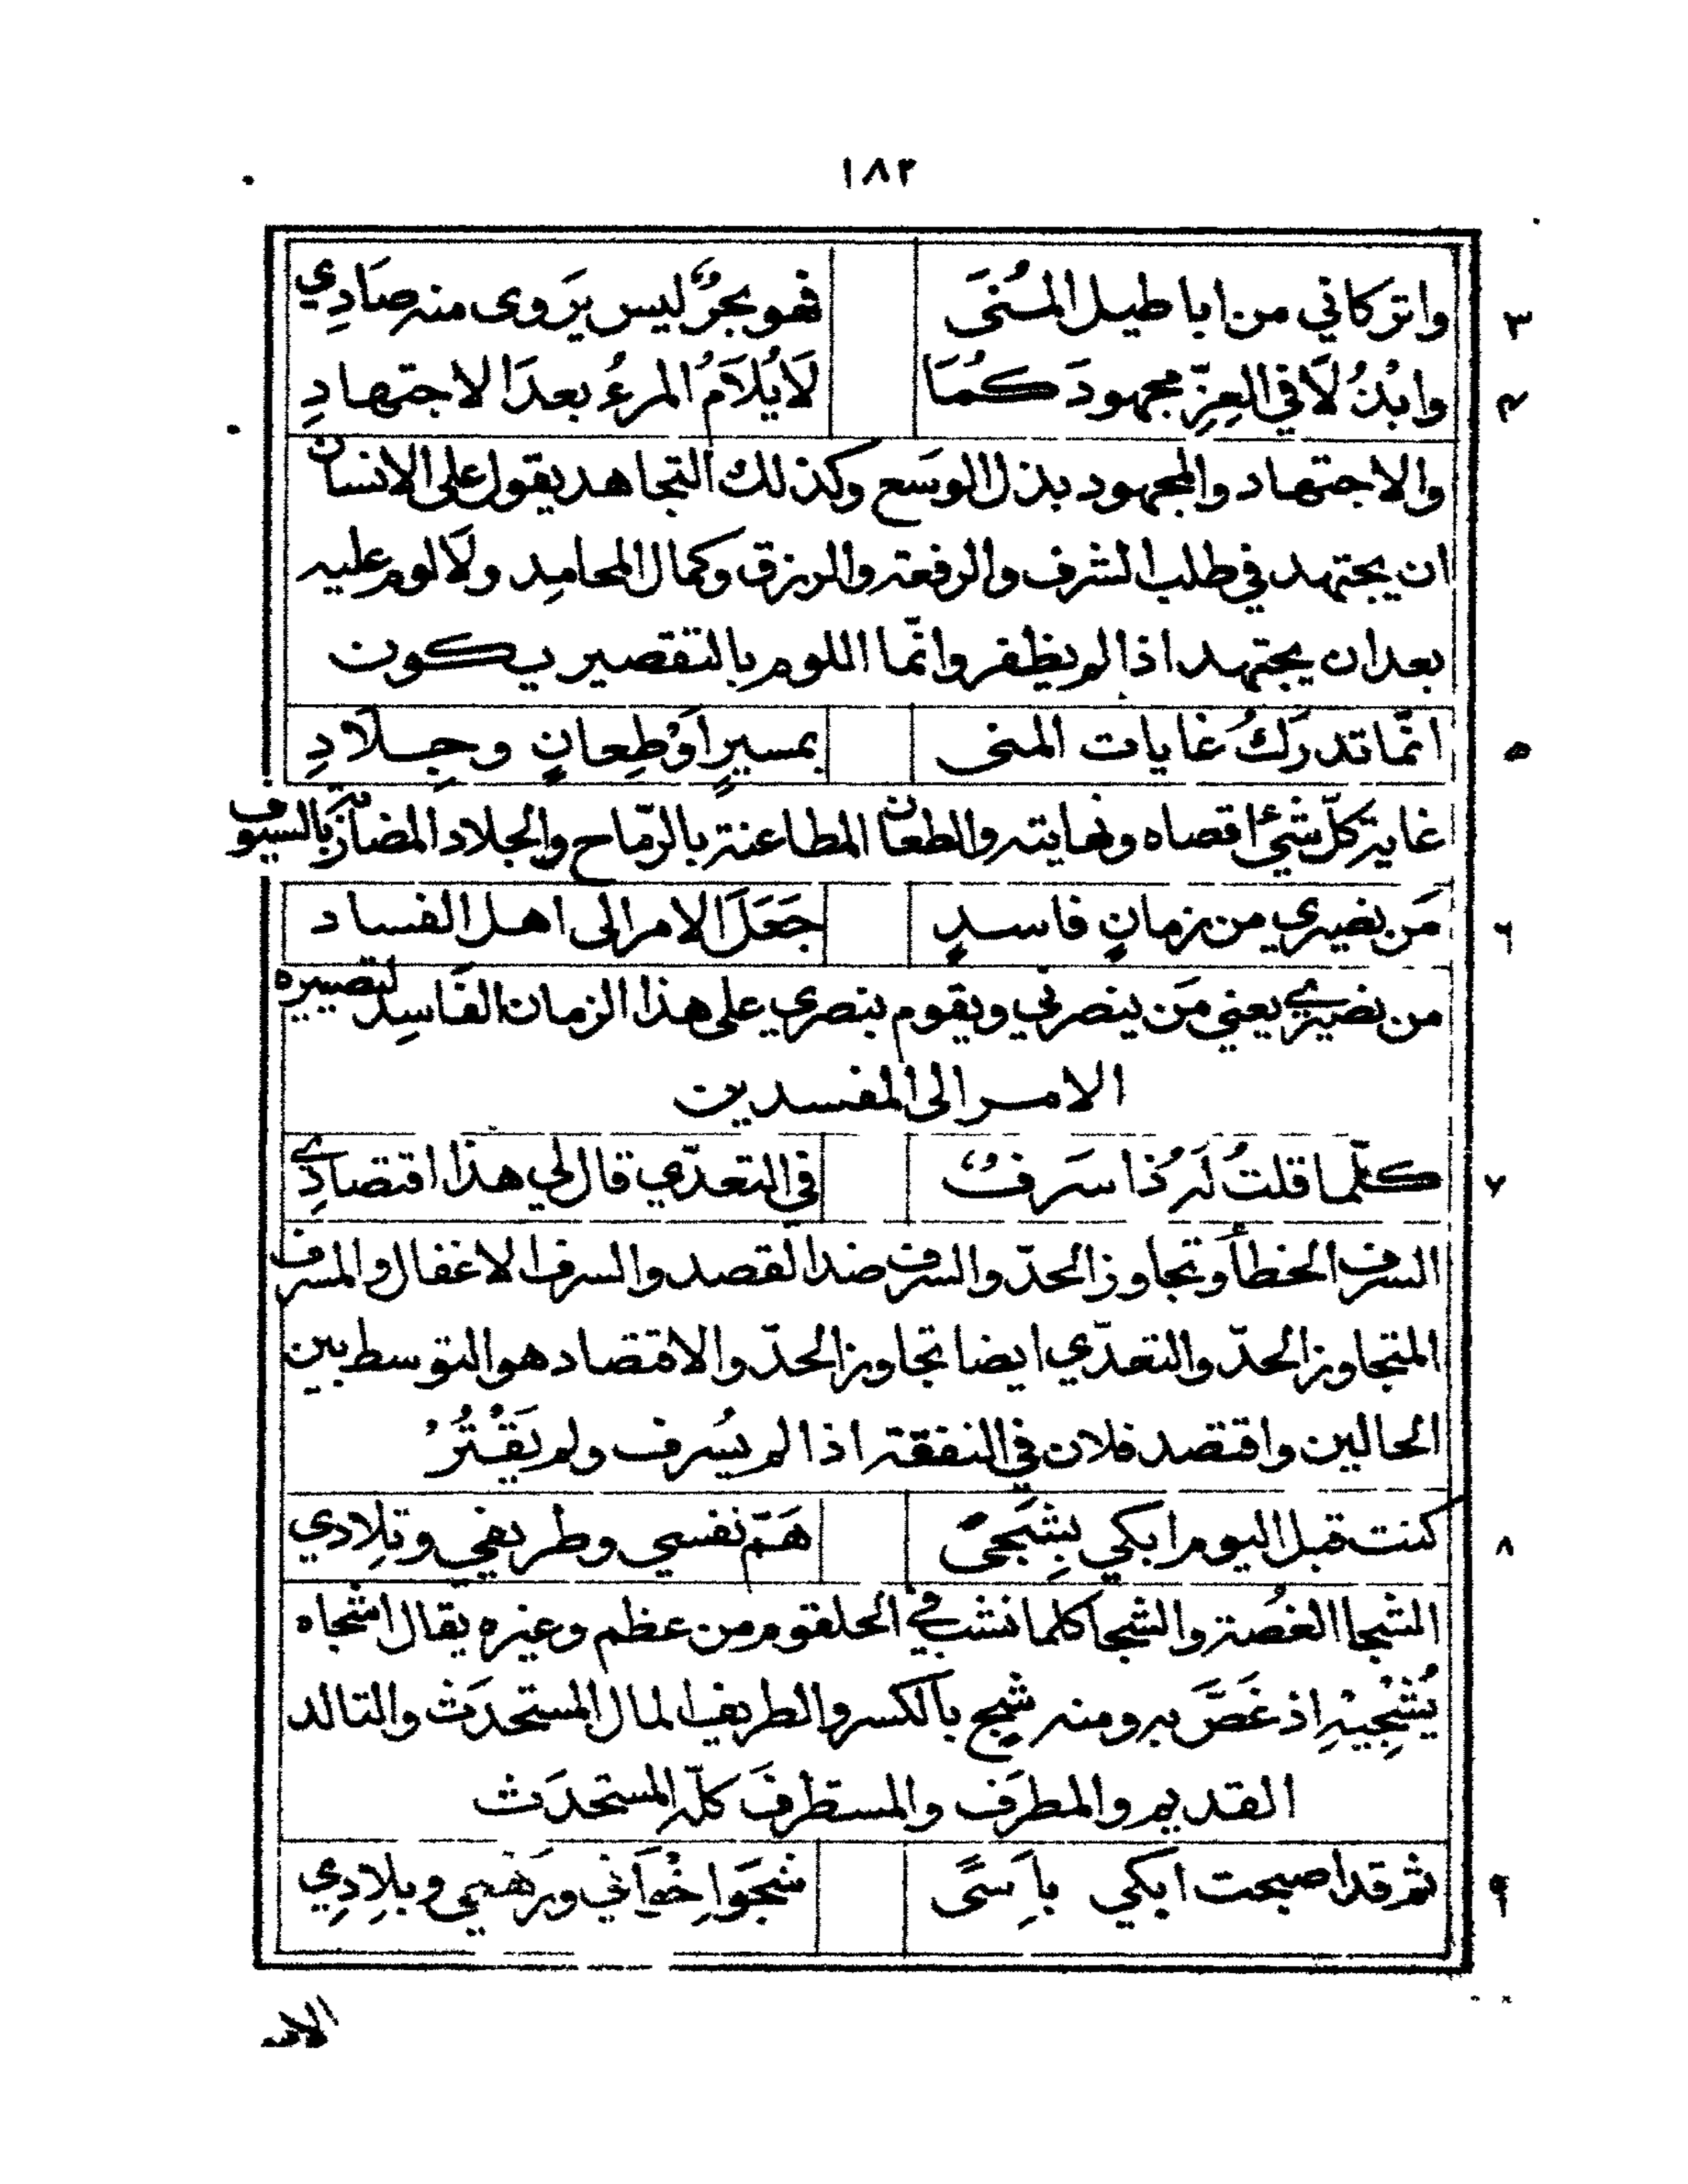 ١٨٢
٣ واتركاني من اباطيل المُنَى فهو بحرٌ ليس يَروى منه صَادِي
٤ وابْذُلَا في العِزِّ مجهودَكُمَا لَا يُلَامُ المرءُ بعدَ الاجتهادِ
والاجتهاد والمجهود بذل الوسَع وكذلك التجاهد يقول على الانسان
ان يجتهد في طلب الشرف والرفعة والرزق وكمال المحامِد ولَا لوم عليه
بعد ان يجتهد اذا لم يظفر وانّما اللوم بالتقصير يكون
٥ انّما تدرَكُ غايات المنى بمسيرٍ اَوْ طِعانٍ وجِلَادِ
غاية كلّ شئ اقصاه ونهايته والطعان المطاعنة بالرّماح والجلاد المضاربة بالسيوف
٦ مَن نصيري من زمانٍ فاسدٍ جَعَلَ الامر الى اهل الفساد
من نصيري يعني مَن ينصرني ويقوم بنصري على هذا الزمان الفَاسِد لتصييره
الامر الى المفسدين
٧ كلّما قلتُ لَهُ ذا سَرَفٌ في التعدّي قال لي هذا اقتصادِي
السرف الخطأ وتجاوز الحدّ والسرف ضد القصد والسرف الاغفال والمسرف
المتجاوز الحدّ والتعدّي ايضا تجاوز الحدّ والاقتصاد هو التوسط بين
الحالين واقتصد فلان في النفقة اذا لم يُسرف ولم يَقْتُرْ
٨ كنت قبل اليوم ابكي بِشَجىً هَمّ نفسي وطريفي وتِلادي
الشجا الغُصة والشجا كلما نشب في الحلقوم من عظم وغيره يقال اشجاه
يُشْجِيْهِ اذ غَصَّ به ومنه شجٍ بالكسر والطريف المال المستحدَث والتالد
القديم والمطرَف والمستطرفَ كلّه المستحدَث
٩ ثم قد اصبحت ابكي باَسىً شجَو اِخْوَاني ورَهْمي وبلِادِي